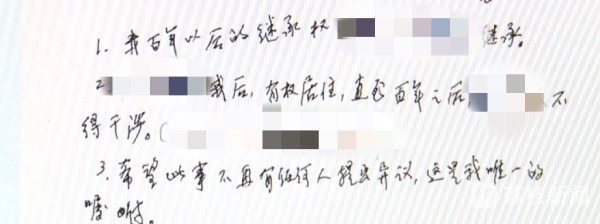 1. 我百年以后的继承权 继承。
2 我后,有权居住,直至百年之后 不
得干涉。(
3. 希望此事不再有任何人提出异议,这是我唯一的
嘱咐。